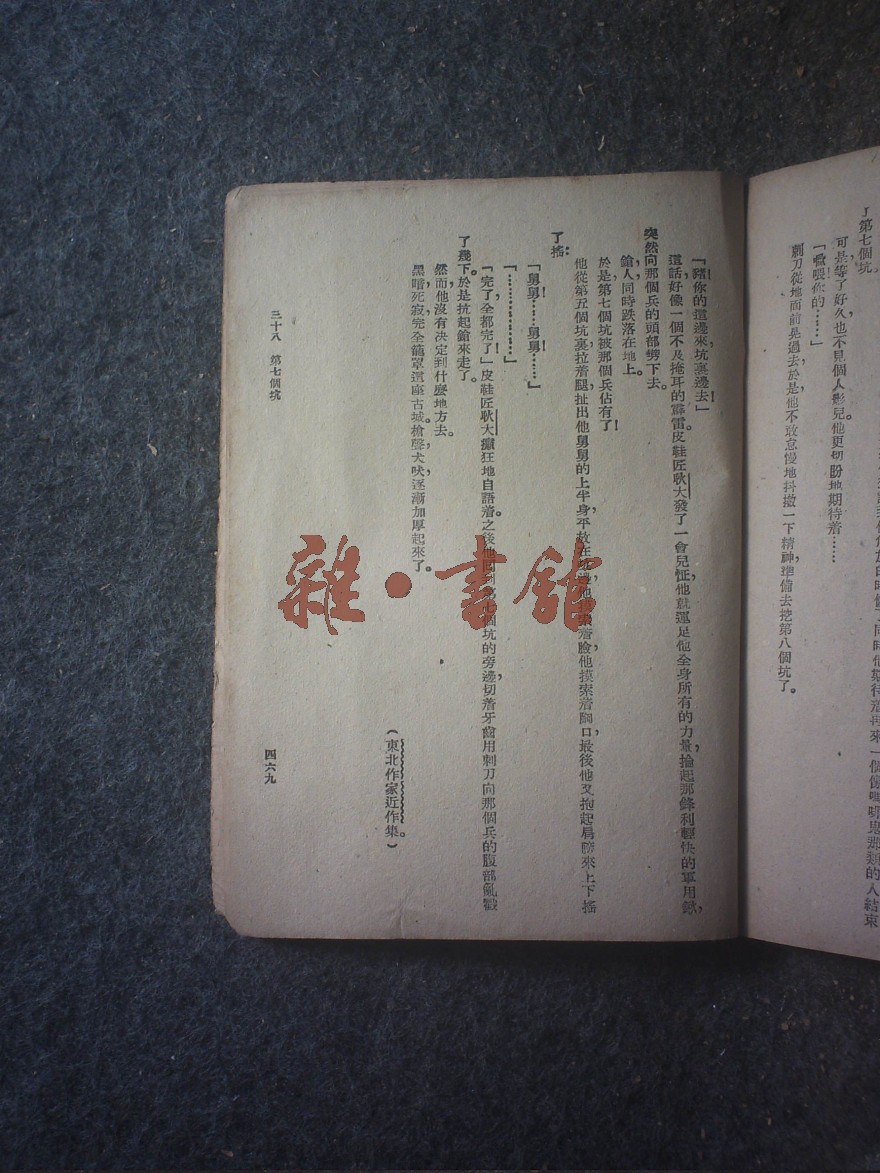 了第七個坑。
可是，等了好久，也不見個人影兒。他更切盼地期待着……
「噉！喂！你的……」
刺刀從地面前晃過去，於是，他不敢怠慢地抖擻一下精神，準備去挖第八個坑了。
「豬！你的這邊來，坑裏邊去！」
這話好像一個不及掩耳的霹雷，皮鞋匠耿大發了一會兒怔，他就運足他全身所有的力量，掄起那鋒利輕快的軍用鍬，
突然向那個兵的頭部劈下去。
鎗，人，同時跌落在地上。
於是，第七個坑被那個兵佔有了！
他從第五個坑裏，拉着腿，扯出他舅舅的上半身，平放在坑邊，他摸索着臉，他摸索着胸口，最後他又抱起肩膀來上下搖
了搖：
「舅舅！……舅舅！……」
「………………」
「完了！全都完了！」皮鞋匠耿大癲狂地自語着。之後，他回到第七個坑的旁邊，切着牙齒，用刺刀向那個兵的腹部亂戳
了幾下。於是，抗起鎗來走了。
然而，他沒有决定到什麼地方去。
黑暗，死寂，完全籠罩這座古城。槍聲，犬吠，逐漸加厚起來了。
（東北作家近作集。）
三十八　第七個坑
四六九
雜·書館